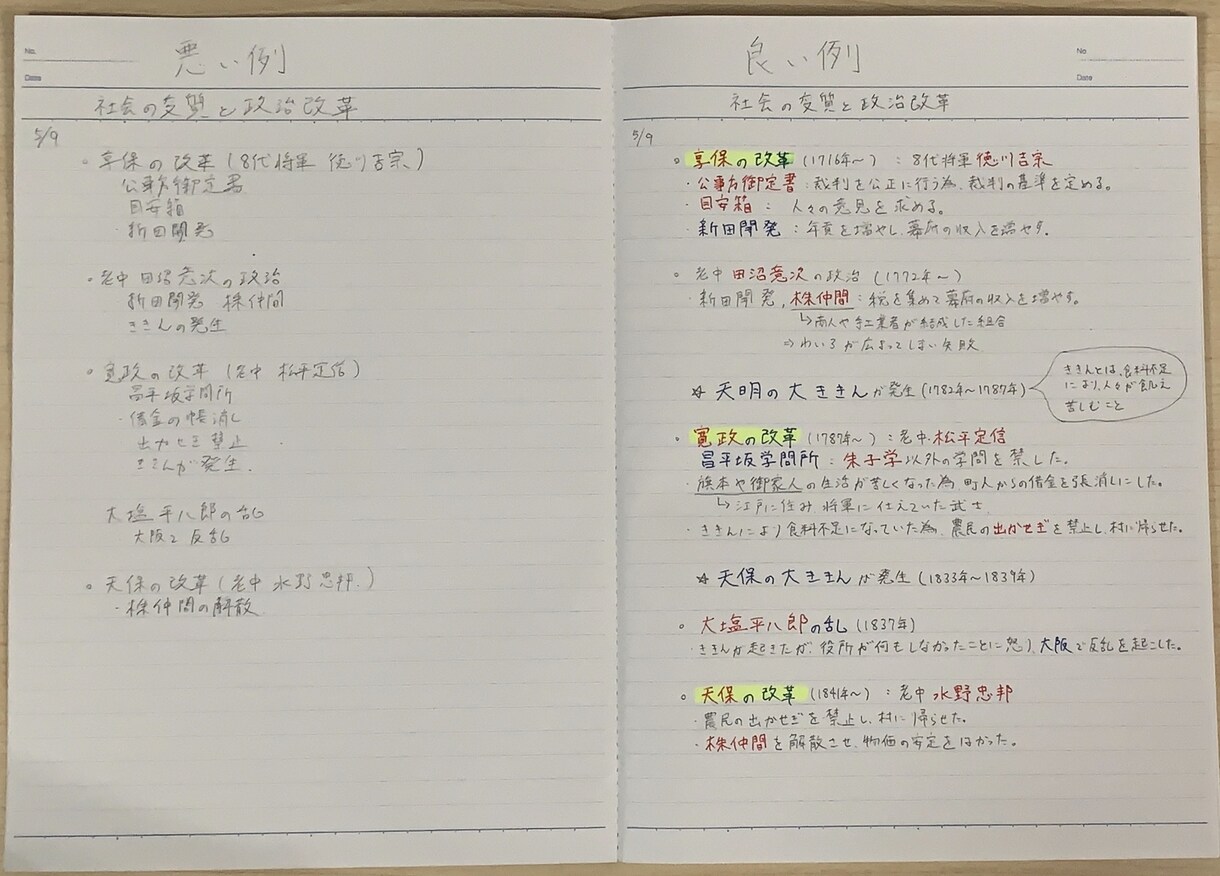 No.
Date
悪い例
社会の変質と政治改革
5/9
。享保の改革(8代将軍 徳川吉宗)
公事方御定書
目安箱
・新田開発
。老中田沼意次の政治
新田開発 株仲間
ききんの発生
。寛政の改革(老中 松平定信)
昌平坂学問所
・借金の帳消し
出かせぎ禁止
ききんが発生.
大塩平八郎の乱
大阪で反乱
。天保の改革(老中 水野忠邦.)
・株仲間の解散
良い例
No
Date
社会の変質と政治改革
5/9
。享保の改革(1716年〜):8代将軍徳川吉宗
・公事方御定書:裁判を公正に行う為、裁判の基準を定める。
・目安箱: 人々の意見を求める。
・新田開発:年貢を増やし、幕府の収入を増やす.
。老中田沼意次の政治(1772年〜)
・新田開発,株仲間:税を集めて幕府の収入を増やす。
↳商人や手工業者が結成した組合
⇒わいろが広まってしまい失敗
☆天明の大ききんが発生(1782年〜1787年)
ききんとは、食料不足
により、人々が飢え
苦しむこと
。寛政の改革(1787年〜):老中・松平定信
昌平坂学問所:朱子学以外の学問を禁した。
・旗本や御家人の生活が苦しくなった為、町人からの借金を張消しにした。
↳江戸に住み、将軍に仕えていた武士
・ききんにより食料不足になっていた為、農民の出かせぎを禁止し、村に帰らせた。
☆天保の大ききんが発生(1833年〜1839年)
。大塩平八郎の乱(1837年)
・ききんが起きたが、役所が何もしなかったことに怒り、大阪で反乱を起こした。
。天保の改革(1841年〜):老中水野忠邦
・農民の出かせぎを禁止し、村に帰らせた。
・株仲間を解散させ、物価の安定をはかった。